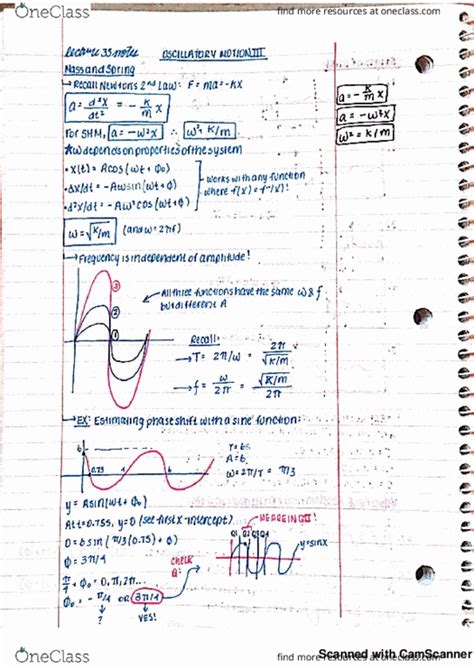 OneClass
find more resources at oneclass.com
Lecture 33 notes
OSCILLATORY MOTION III
Mass and Spring
→ Recall Newton's 2nd Law: F = ma = -kx
a = d²x/dt² = - k/m x
For SHM, a = -ω²x ∴ ω² = k/m
*ω depends on properties of the system
• x(t) = Acos(ωt + φ₀)
• dx/dt = -Aωsin(ωt + φ)
• d²x/dt² = -Aω²cos(ωt + φ)
works with any function
where f(x) = f''(x)!
ω = √k/m (and ω = 2πf)
a = - k/m x
a = -ω²x
ω² = k/m
→ Frequency is independent of amplitude!
③
②
①
All three functions have the same ω & f
but different A
Recall:
→ T = 2π/ω = 2π/√k/m
→ f = ω/2π = √k/m/2π
→ EX: Estimating phase shift with a sine function:
6
0.75
6
A = 6
ω = 2π/T = π/3
y = Asin(ωt + φ₀)
At t = 0.75s, y = 0 (see first x-intercept)
0 = 6 sin(π/3(0.75) + φ)
φ = 3π/4
π/4 + φ₀ = 0, π, 2π...
φ₀ = -π/4 OR 3π/4
?
YES!
CHECK
Q:
WE'RE IN Q II!
Q1 Q2 Q3 Q4
y = sinx
Scanned with CamScanner
OneClass
find more resources at oneclass.com